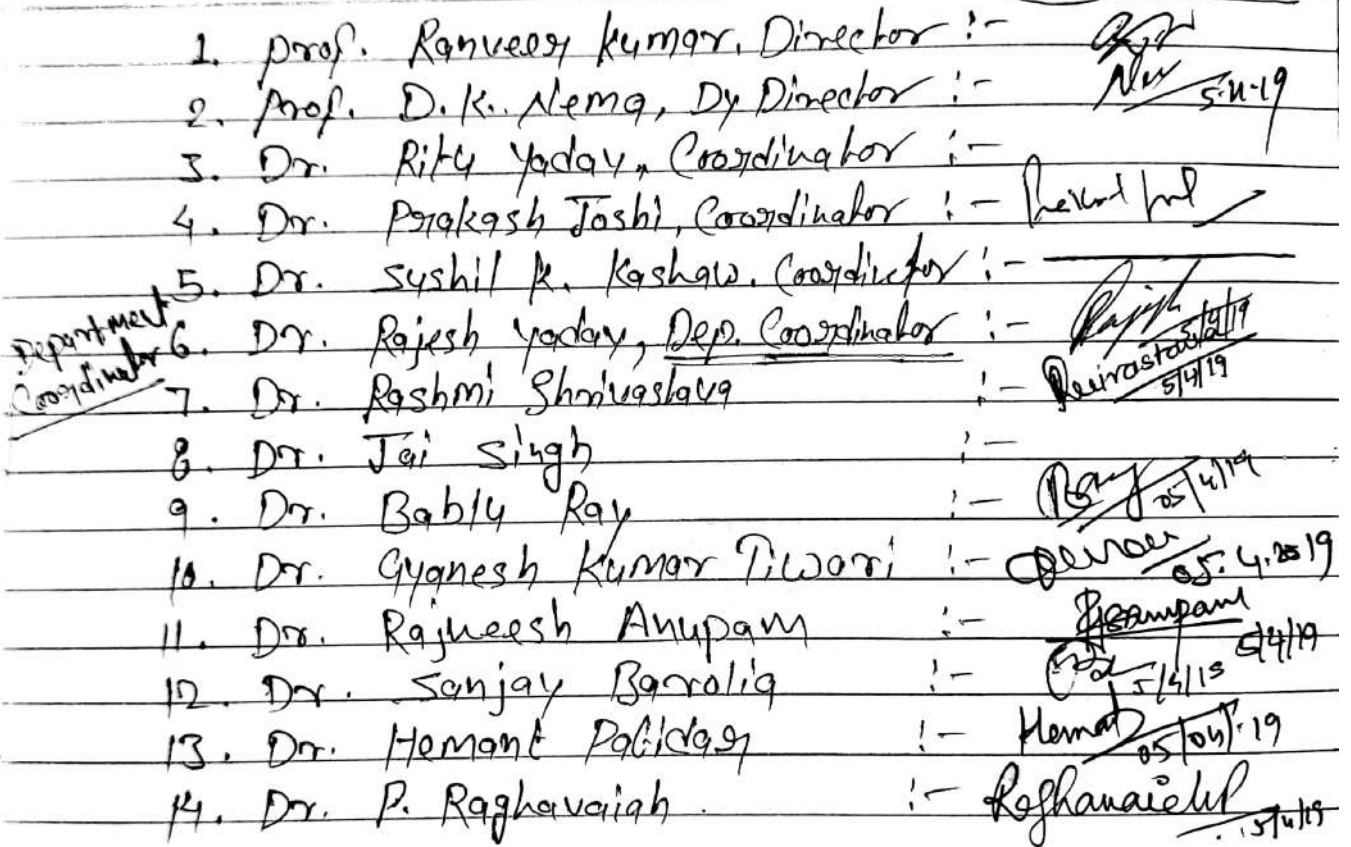 1. Prof. Ranveer Kumar, Director :-
2. Prof. D.K. Nema, Dy Director :- 5.4.19
3. Dr. Ritu Yadav, Coordinator :-
4. Dr. Prakash Joshi, Coordinator :-
5. Dr. Sushil K. Kashaw. Coordinator :-
Department Coordinator
6. Dr. Rajesh Yadav, Dep. Coordinator :- Rajesh 5/4/19
7. Dr. Rashmi Shrivastava :- 5/4/19
8. Dr. Jai Singh :-
9. Dr. Bablu Ray :- Ray 05/4/19
10. Dr. Gyanesh Kumar Tiwari :- 05.4.2019
11. Dr. Rajneesh Anupam :- 5/4/19
12. Dr. Sanjay Barolia :- 5/4/19
13. Dr. Hemant Patidar :- Hemant 05/04/19
14. Dr. P. Raghavaiah :- Raghavaiah 5/4/19